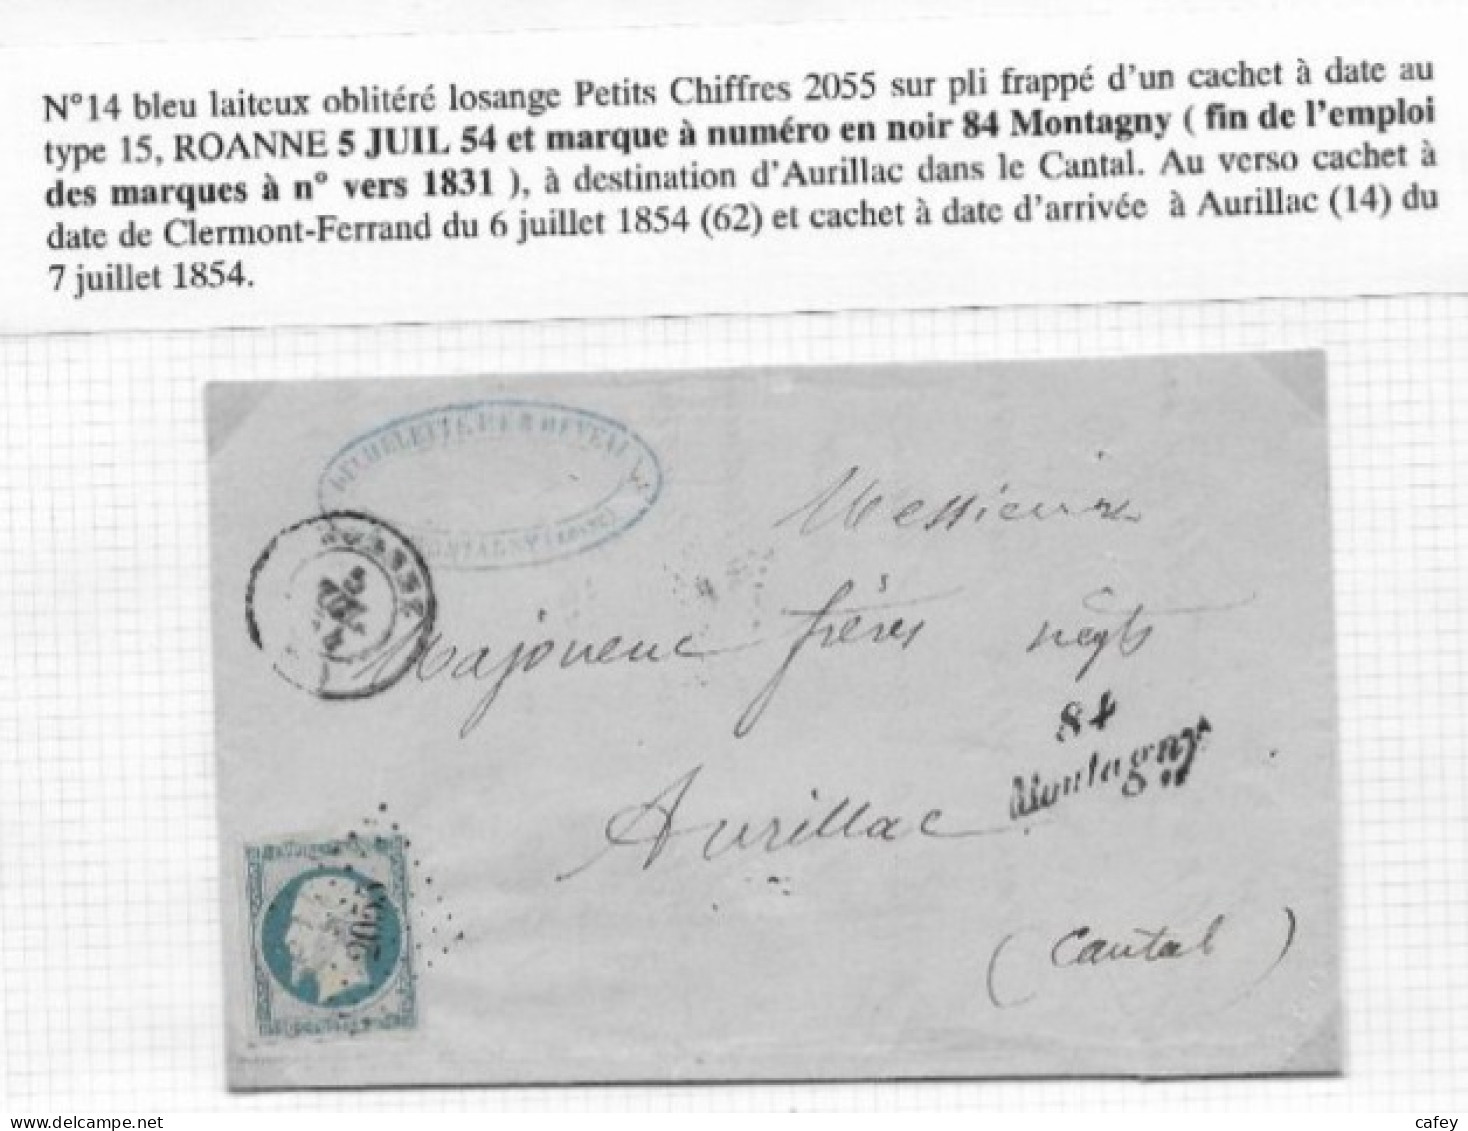 N°14 bleu laiteux oblitéré losange Petits Chiffres 2055 sur pli frappé d'un cachet à date au
type 15, ROANNE 5 JUIL 54 et marque à numéro en noir 84 Montagny ( fin de l'emploi
des marques à n° vers 1831 ), à destination d'Aurillac dans le Cantal. Au verso cachet à
date de Clermont-Ferrand du 6 juillet 1854 (62) et cachet à date d'arrivée à Aurillac (14) du
7 juillet 1854.
MONTAGNY (LOIRE)
ROANNE
5
JUIL
Messieurs
frères négts
84
Montagny
Aurillac
(Cantal)
2055
cafey